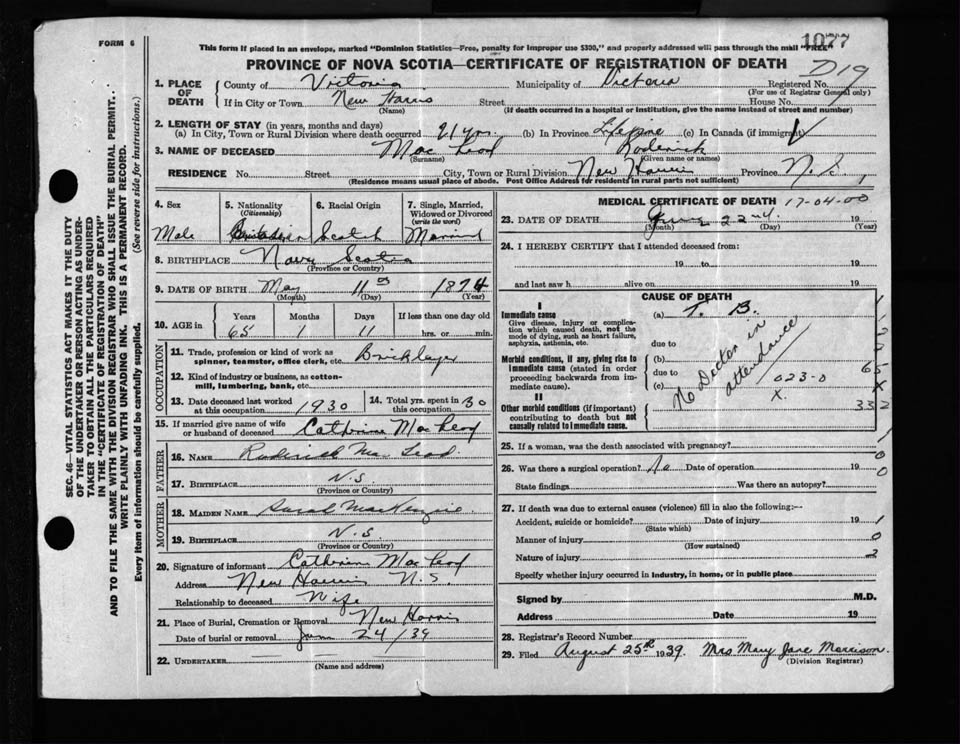 FORM 6
This form if placed in an envelope, marked "Dominion Statistics—Free, penalty for improper use $300," and properly addressed will pass through the mail "FREE"
1077
PROVINCE OF NOVA SCOTIA—CERTIFICATE OF REGISTRATION OF DEATH
D19
1. PLACE OF DEATH
County of Victoria Municipality of Victoria Registered No.
(For use of Registrar General only)
If in City or Town New Harris Street House No.
(Name) (If death occurred in a hospital or institution, give the name instead of street and number)
2. LENGTH OF STAY (in years, months and days)
(a) In City, Town or Rural Division where death occurred 21 yrs. (b) In Province Lifetime (c) In Canada (if immigrant)
3. NAME OF DECEASED Mac Leod Roderick
(Surname) (Given name or names)
RESIDENCE No. Street City, Town or Rural Division New Harris Province N.S.
(Residence means usual place of abode. Post Office Address for residents in rural parts not sufficient)
SEC. 46—VITAL STATISTICS ACT MAKES IT THE DUTY
OF THE UNDERTAKER OR PERSON ACTING AS UNDER-
TAKER TO OBTAIN ALL THE PARTICULARS REQUIRED
IN THE "CERTIFICATE OF REGISTRATION OF DEATH"
AND TO FILE THE SAME WITH THE DIVISION REGISTRAR WHO SHALL ISSUE THE BURIAL PERMIT.
WRITE PLAINLY WITH UNFADING INK. THIS IS A PERMANENT RECORD.
Every item of information should be carefully supplied. (See reverse side for instructions.)
4. Sex
Male
5. Nationality
(Citizenship)
6. Racial Origin
Scotch
7. Single, Married,
Widowed or Divorced
(write the word)
Married
8. BIRTHPLACE Nova Scotia
(Province or Country)
9. DATE OF BIRTH May 11 1874
(Month) (Day) (Year)
10. AGE in
Years Months Days If less than one day old
65 1 11 hrs. or min.
OCCUPATION
11. Trade, profession or kind of work as Bricklayer
spinner, teamster, office clerk, etc.
12. Kind of industry or business, as cotton-
mill, lumbering, bank, etc.
13. Date deceased last worked
at this occupation 1930
14. Total yrs. spent in
this occupation 30
15. If married give name of wife
or husband of deceased Catherine Mac Leod
FATHER
16. NAME Roderick Mac Leod
17. BIRTHPLACE N.S.
(Province or Country)
MOTHER
18. MAIDEN NAME Sarah MacKenzie
19. BIRTHPLACE N.S.
(Province or Country)
20. Signature of informant Catherine Mac Leod
Address New Harris N.S.
Relationship to deceased Wife
21. Place of Burial, Cremation or Removal New Harris
Date of burial or removal June 24/39
22. UNDERTAKER
(Name and address)
MEDICAL CERTIFICATE OF DEATH 17-04-00
23. DATE OF DEATH June 22nd 19
(Month) (Day) (Year)
24. I HEREBY CERTIFY that I attended deceased from:
19 to 19
and last saw h alive on 19
CAUSE OF DEATH
I
Immediate cause
Give disease, injury or complica-
tion which caused death, not the
mode of dying, such as heart failure,
asphyxia, asthenia, etc.
(a) T. B.
due to
Morbid conditions, if any, giving rise to
immediate cause (stated in order
proceeding backwards from im-
mediate cause).
(b)
due to
(c)
No Doctor in
attendance
023-0
X.
II
Other morbid conditions (important)
contributing to death but not
causally related to immediate cause.
1
2
2
65
X
332
1
0
0
25. If a woman, was the death associated with pregnancy?
26. Was there a surgical operation? No Date of operation 19
State findings Was there an autopsy?
27. If death was due to external causes (violence) fill in also the following:—
Accident, suicide or homicide? Date of injury 19 1
(State which)
Manner of injury 0
(How sustained)
Nature of injury 2
Specify whether injury occurred in industry, in home, or in public place
Signed by M.D.
Address Date 19
28. Registrar's Record Number
29. Filed August 25th 1939. Mrs Mary Jane Morrison.
(Division Registrar)